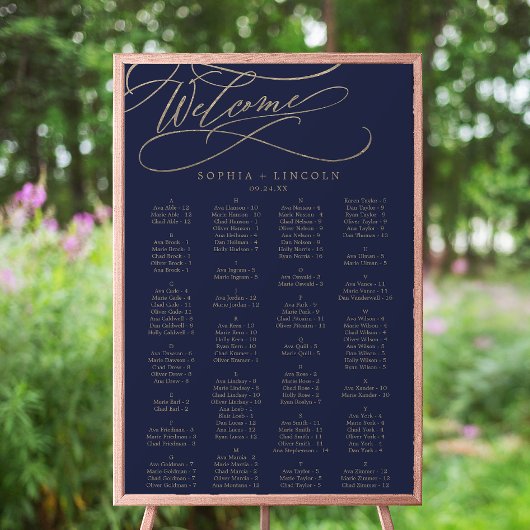 Welcome
SOPHIA + LINCOLN
09.24.XX
A
Ava Able - 12
Marie Able - 12
Chad Able - 12
B
Ava Brock - 1
Marie Brock - 1
Chad Brock - 1
Oliver Brock - 1
Ana Brock - 1
C
Ava Cade - 4
Marie Cade - 4
Chad Cade - 11
Oliver Cade - 11
Ana Caldwell - 8
Dan Caldwell - 8
Holly Caldwell - 8
D
Ava Dawson - 6
Marie Dawson - 6
Chad Drew - 8
Oliver Drew - 8
Ana Drew - 8
E
Marie Earl - 2
Chad Earl - 2
F
Ava Friedman - 3
Marie Friedman - 3
G
Ava Goldman - 7
Marie Goldman - 7
Chad Goldman - 7
Oliver Goldman - 7
H
Ava Hanson - 10
Marie Hanson - 10
Chad Hanson - 10
Oliver Hanson - 1
Ana Heilman - 4
Dan Heilman - 4
Holly Hudson - 7
I
Ava Ingram - 5
Marie Ingram - 5
J
Ava Jordan - 12
Marie Jordan - 12
K
Ava Kern - 10
Marie Kern - 10
Holly Kern - 10
Ryan Kern - 10
Chad Kramer - 1
Oliver Kramer - 1
L
Ava Lindsay - 8
Marie Lindsay - 8
Chad Lindsay - 10
Oliver Lindsay - 10
Ana Loeb - 1
Blair Loeb - 1
Dan Lucas - 12
Ryan Lucas - 12
M
Ava Marcia - 2
Marie Marcia - 2
Chad Marcia - 2
Oliver Marcia - 2
Ana Montano - 12
N
Ava Nassau - 4
Marie Nassau - 4
Chad Nelson - 9
Oliver Nelson - 9
Ana Nelson - 9
Dan Nelson - 9
Holly Norris - 16
Ryan Norris - 16
O
Ava Oswald - 2
Marie Oswald - 3
P
Ava Park - 9
Marie Park - 9
Chad Pitcairn - 5
Oliver Pitcairn - 5
Q
Ava Quill - 3
Marie Quill - 3
R
Ava Rose - 2
Marie Rose - 2
Chad Rose - 2
Holly Rose - 2
Ryan Roslyn - 7
S
Ava Smith - 11
Marie Smith - 11
Chad Smith - 11
Oliver Smith - 11
Ana Stephenson - 14
T
Ava Taylor - 5
Marie Taylor - 5
Chad Taylor - 5
Karen Taylor - 5
Dan Taylor - 9
Ryan Taylor - 9
Oliver Taylor - 9
Dan Thomas - 13
U
Ava Ulman - 5
Marie Ulman - 5
V
Ava Vance - 11
Marie Vance - 11
Dan Vanderhall - 16
W
Ava Wilson - 4
Marie Wilson - 4
Chad Wilson - 5
Oliver Wilson - 5
Ana Wilson - 5
Dan Wilson - 5
X
Ava Xander - 10
Marie Xander - 10
Y
Marie York - 4
Chad York - 4
Oliver York - 4
Ana York - 4
Dan York - 4
Z
Ava Zimmer - 12
Marie Zimmer - 12
Chad Zimmer - 12